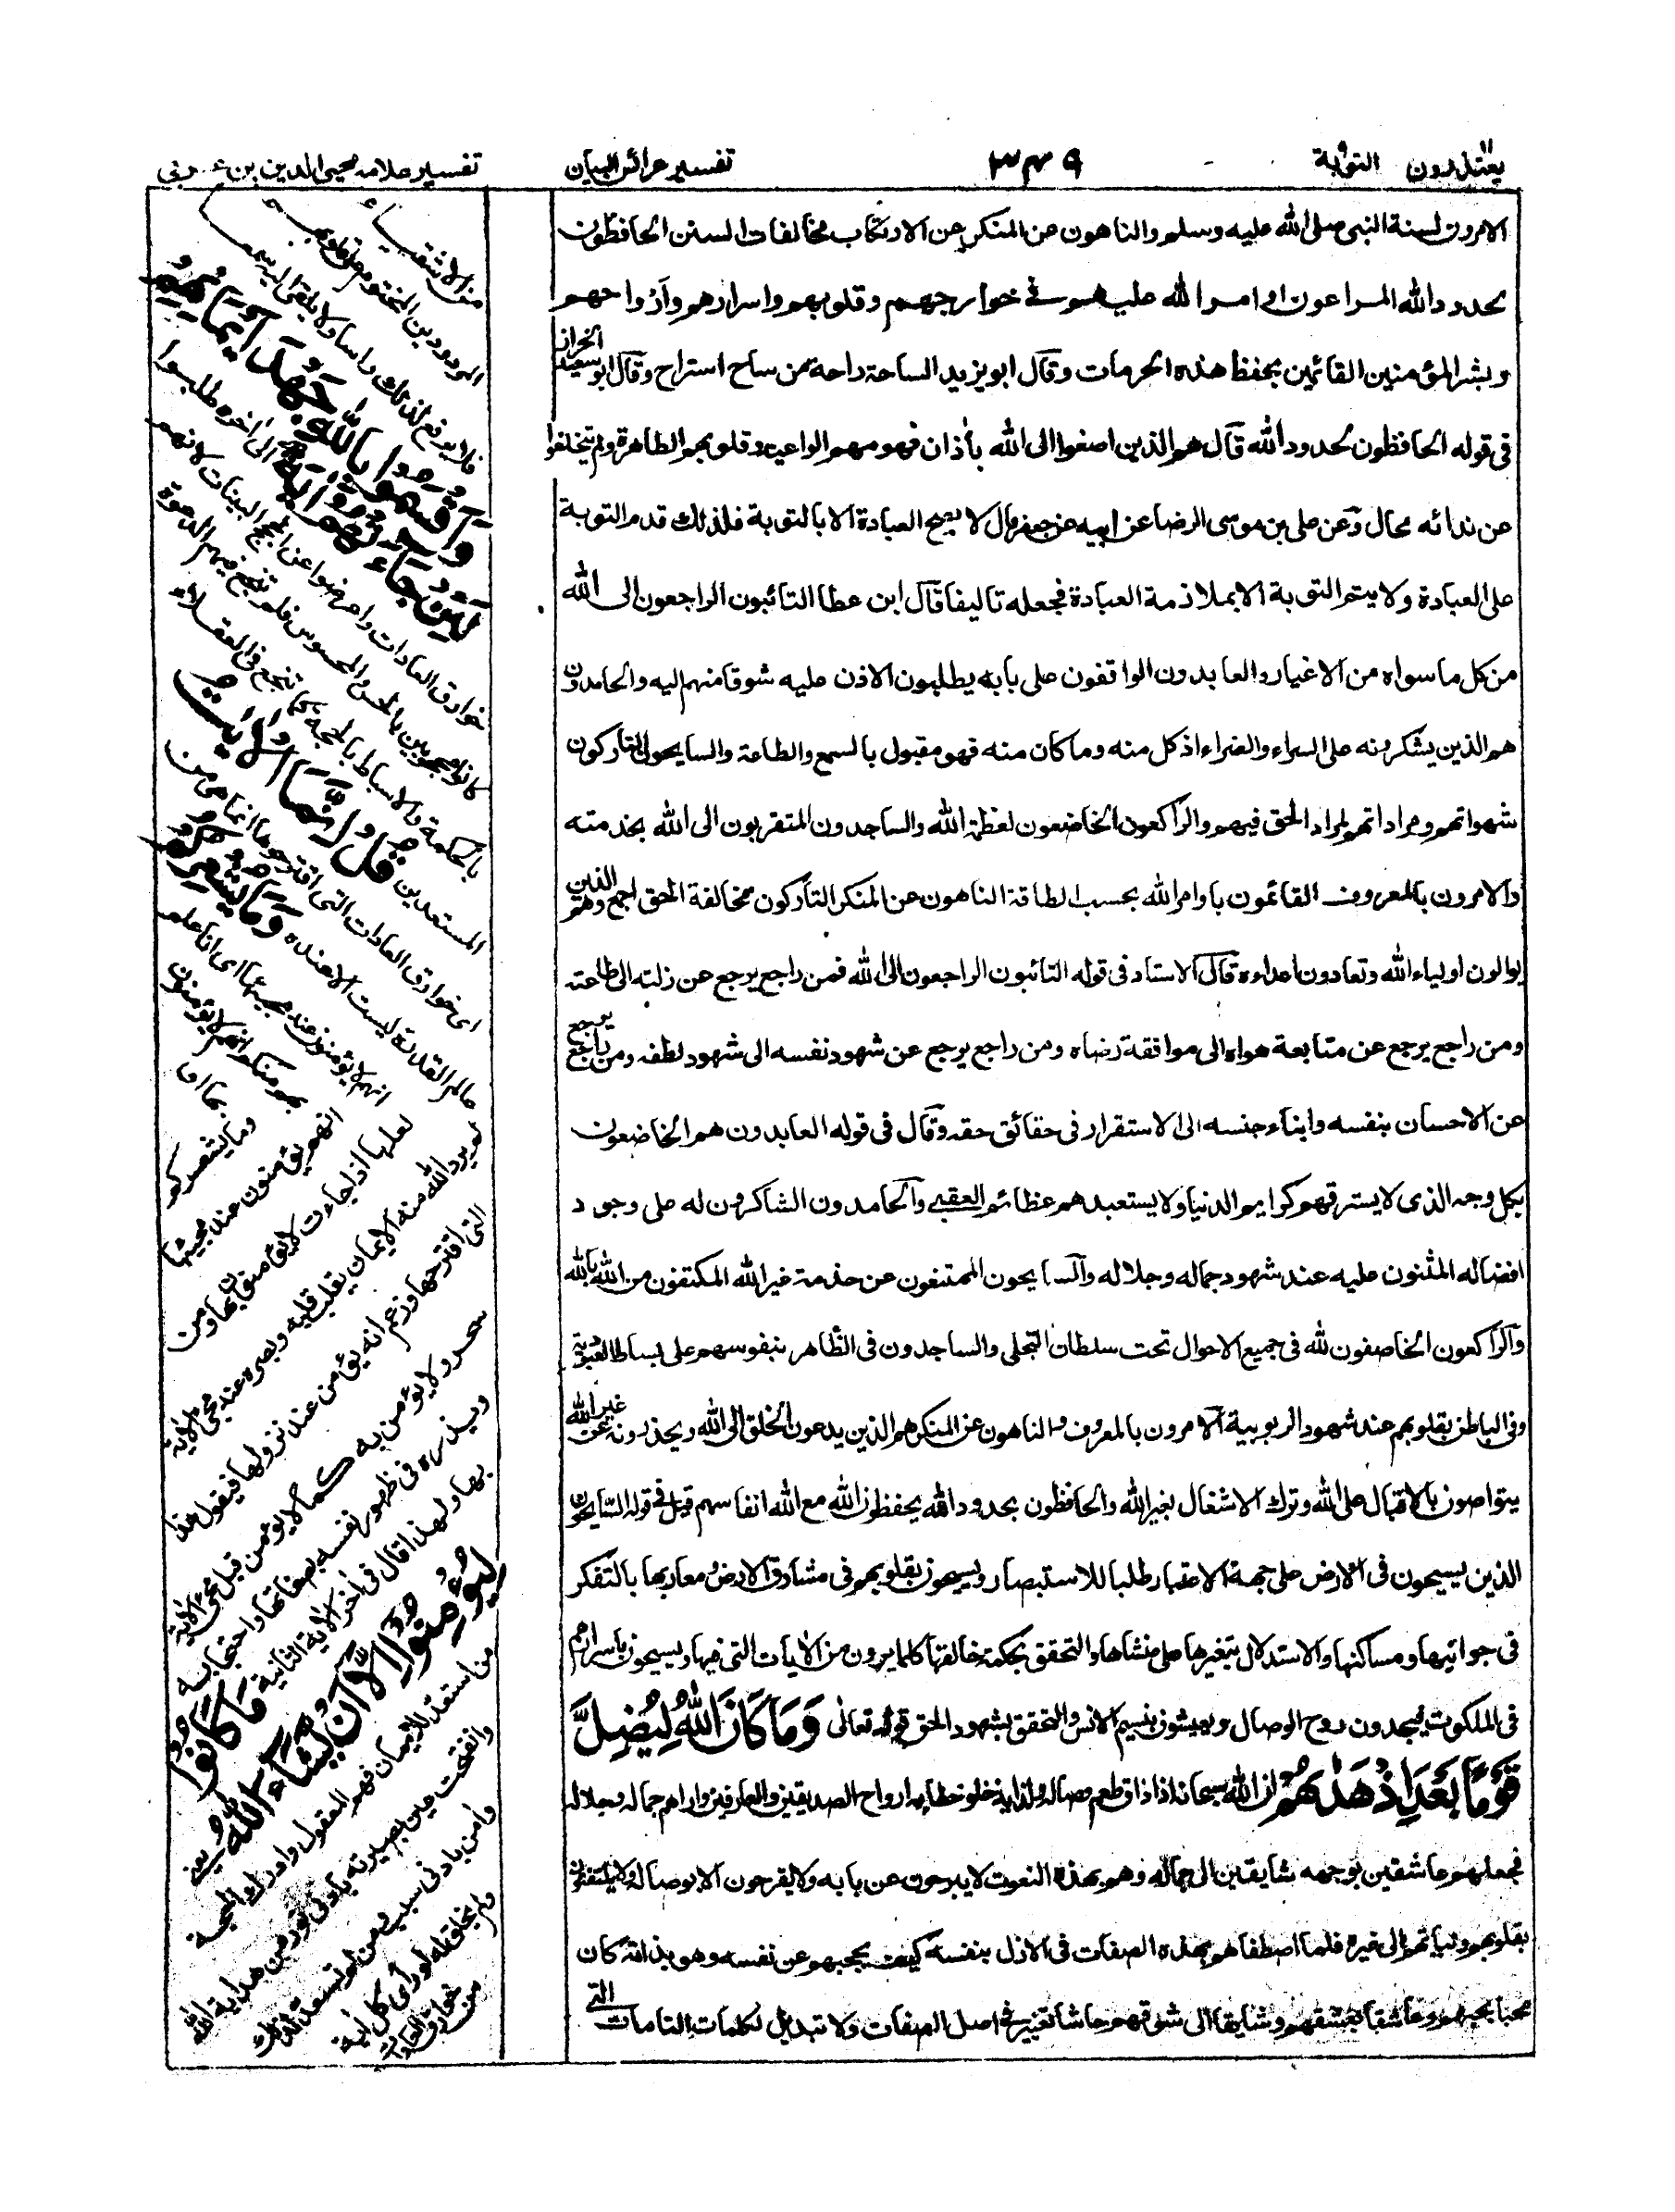 يعتذرون التوبة ٣٤٩ تفسير عرائس البيان تفسير علامه محيى الدين بن عربى
الامرون لسنة النبى صلى الله عليه وسلم والناهون عن المنكر عن الارتكاب مخالفات السنن الحافظون
لحدود الله المراعون اوامر الله عليهم فى جوارحهم وقلوبهم واسرارهم وارواحهم
وبشر المؤمنين القائمين بحفظ هذه الحرمات وقال ابو يزيد الساحة راحة من ساح استراح وقال ابو سعيد الخراز
فى قوله الحافظون لحدود الله قال هم الذين اصغوا الى الله بأذان فهومهم الواعية وقلوبهم الطاهرة ولم يتخلفوا
عن ندائه بحال وعن على بن موسى الرضا عن ابيه عن جعفر قال لا يصح العبادة الا بالتوبة فلذلك قدم التوبة
على العبادة ولا يتم التوبة الا بملازمة العبادة فجعله تاليفا قال ابن عطا التائبون الراجعون الى الله
من كل ما سواه من الاغيار والعابدون الواقفون على بابه يطلبون الاذن عليه شوقا منهم اليه والحامدون
هم الذين يشكرونه على السراء والضراء اذ كل منه وما كان منه فهو مقبول بالسمع والطاعة والسايحون التاركون
شهواتهم ومراداتهم لمراد الحق فيهم والراكعون الخاضعون لعظمة الله والساجدون المتقربون الى الله بخدمته
والامرون بالمعروف القائمون باوامر الله بحسب الطاقة الناهون عن المنكر التاركون مخالفة الحق اجمع وهم الذين
يوالون اولياء الله وتعادون اعداءه قال الاستاد فى قوله التائبون الراجعون الى الله فمن راجع يرجع عن زلته الى طاعته
ومن راجع يرجع عن متابعة هواه الى موافقة رضاه ومن راجع يرجع عن شهود نفسه الى شهود لطفه ومن راجع يرجع
عن الاحسان بنفسه وابناء جنسه الى الاستقرار فى حقائق حقه وقال فى قوله العابدون هم الخاضعون
بكل وجه الذى لا يسترقهم كرايم الدنيا ولا يستعبدهم عظائم العقبى والحامدون الشاكرون له على وجود
افضاله المثنون عليه عند شهود جماله وجلاله والسايحون الممتنعون عن خدمة غير الله المكتفون من الله بالله
والراكعون الخاضعون لله فى جميع الاحوال تحت سلطان التجلى والساجدون فى الظاهر بنفوسهم على بساط العبودية
وفى الباطن بقلوبهم عند شهود الربوبية الامرون بالمعروف والناهون عن المنكر هم الذين يدعون الخلق الى الله ويحذرونه عن غير الله
يتواصون بالاقبال على الله وترك الاشغال بغير الله والحافظون بحدود الله يحفظون الله مع الله انفاسهم قيل فى قوله السايحون
الذين يسيحون فى الارض على جهة الاعتبار طلبا للاستبصار ويسيحون بقلوبهم فى مشارق الارض ومغاربها بالتفكر
فى جوانبها ومساكنها والاستدلال بتغيرها على منشاها والتحقق بحكمة خالقها كلما يرون من الايات التى فيها ويسيحون باسرارهم
فى الملكوت فيجدون روح الوصال ويعيشون بنسيم الانس والتحقق بشهود الحق قوله تعالى وَمَا كَانَ اللهُ لِيُضِلَّ
قَوْمًا بَعْدَ اِذْ هَدٰىهُمْ ان الله سبحانه اذا ذاق طعم وصاله ولذايذ خطابه ارواح الصديقين والعارفين واراهم جماله وجلاله
فجعلهم عاشقين بوجهه شايقين الى جماله وهم بهذه النعوت لا يبرحون عن بابه ولا يفرحون الا بوصاله ولا يلتفتون
بقلوبهم ونياتهم الى غيره فلما اصطفاهم بهذه الصفات فى الازل بنفسه كيف يحجبهم عن نفسه وهو بذاته كان
محبا بحبهم وعاشقا بعشقهم وشايقا الى شوقهم حاشا تغيير فى اصل الصفات ولا تبديل لكلمات التامات التى
من الاشقياء
المردودين المختوم على قلوبهم
فلا يرفع لذلك راسا ولا يلقى اليه سمعا
وَاَقْسَمُوْا بِاللهِ جَهْدَ اَيْمَانِهِمْ
لَئِنْ جَاءَتْهُمْ اٰيَةٌ الى اخره طلبوا
خوارق العادات واعرضوا عن الحجج البينات لانهم
كانوا محجوبين بالحس والمحسوس فلم تنجع فيهم الدعوة
بالحكمة والاسباط بالحجة كما تنجع فى العقلاء
المستعدين قُلْ اِنَّمَا الْاٰيٰتُ
اى خوارق العادات التى اقترحوها انما هى من
عالم القدرة ليست الا عنده وَمَا يُشْعِرُكُمْ
انهم لا يؤمنون عند مجيئها اى انا اعلم
بهم منكم انهم لا يؤمنون
بها او
وما يشعركم
انهم يؤمنون عند مجيئها
لعلها اذا جاءت لا يؤمنون بها ومن
لم يرد الله منه الايمان يقلب قلبه وبصره عند مجئ الاية
التى اقترحها وزعم انه يؤمن عند نزولها فيقول هذا
سحر ولا يؤمن به كما لا يؤمن قبل مجئ الاية
ويذره فى ظهور نفسه بصفاتها واحتجابه
بها ولهذا قال فى اخر الاية الثانية مَا كَانُوْا
لِيُؤْمِنُوْا اِلَّا اَنْ يَّشَاءَ اللهُ يعنى
من استعد للايمان فهم المعقول وادرك الحجة
وانفتحت عين بصيرته بادنى نور من هداية الله
وامن بادنى سبب ومن لم يستعد لذلك
ولم يخلق له لو رأى كل اية
من خوارق العادات